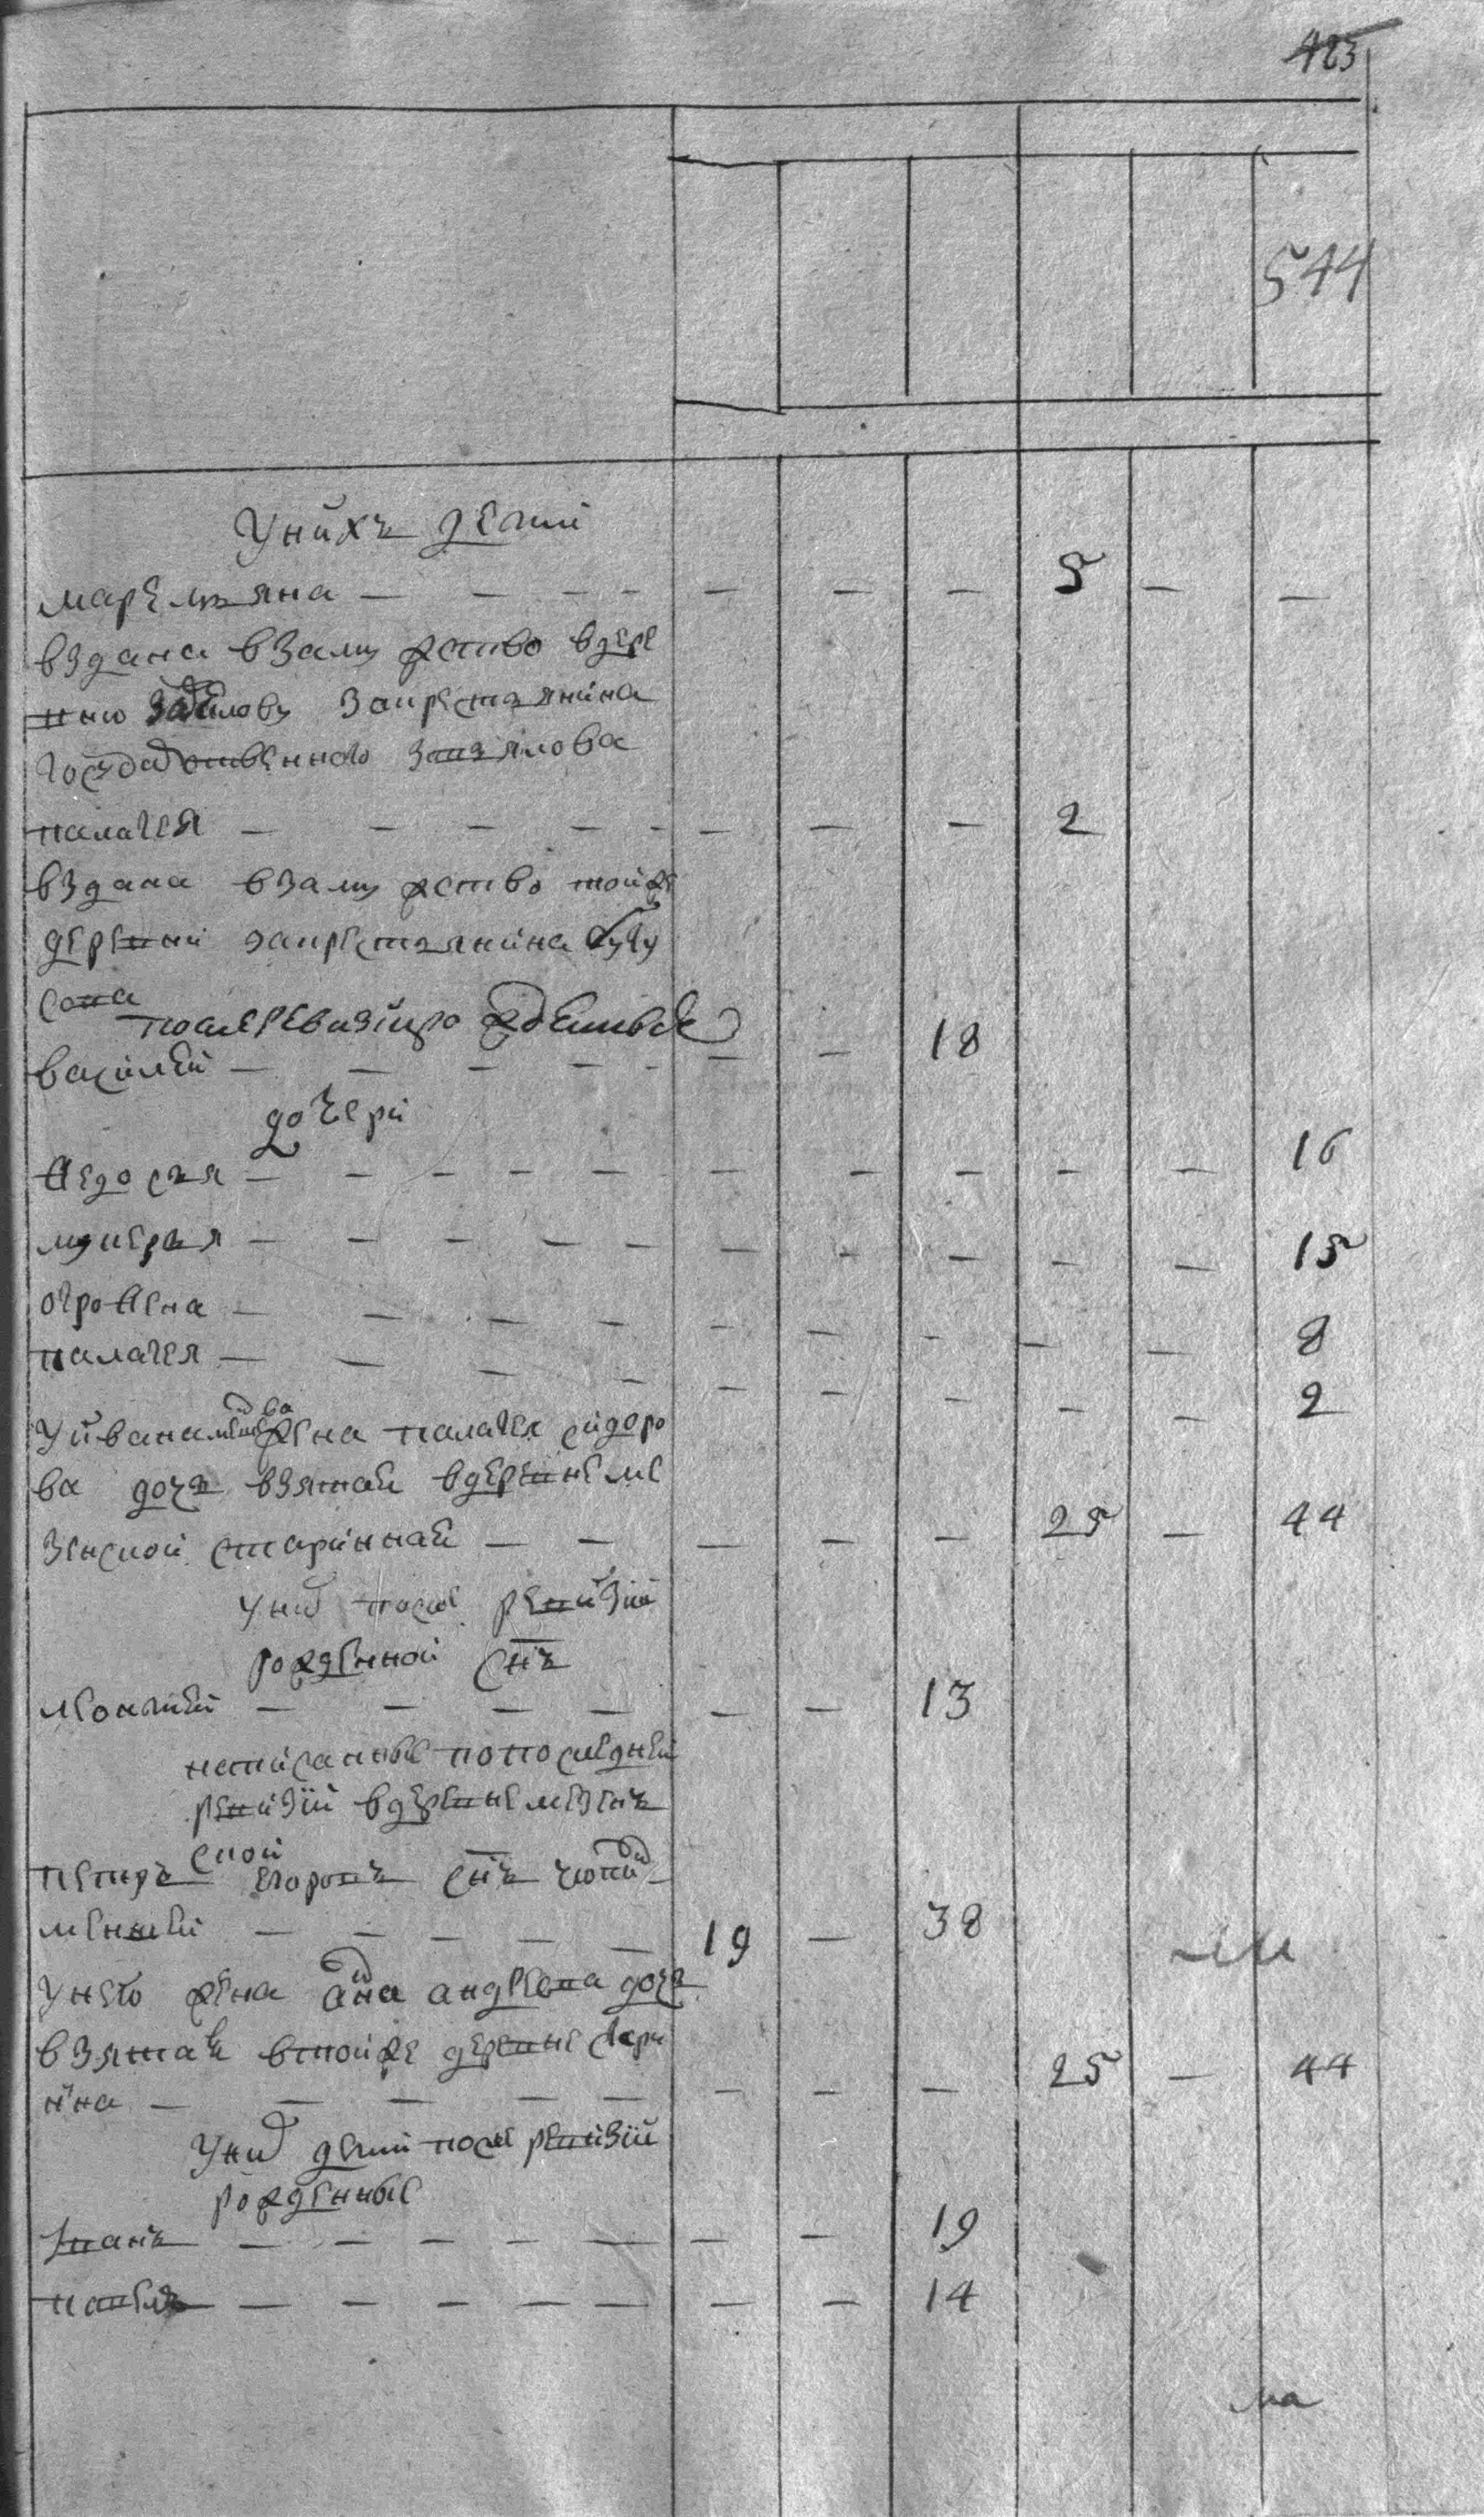 485
544
Унихъ дети
маремьяна — — — — — — — 5 — —
выдана взамужство вдере
вню за крестьянина
государственного
палагея — — — — — — — — 2
выдана взамужство тойже
деревни закрестьянина
сова
после ревизии рожденные
василей — — — — — — — 18
дочери
федосья — — — — — — — — — — 16
лукерья — — — — — — — — — — 15
огрофена — — — — — — — — — 8
палагея — — — — — — — — — 2
Уивана жена палагея сидоро
ва дочь взятая вдеревне ме
зенской старинная — — — — — 25 — 44
Уних после ревизии
рожденной снъ
леонтей — — — — — — 13
написанные попоследней
ревизии вдеревне мезенъ
ской
петръ егоровъ снъ
меншей — — — — — 19 — 38
Унего жена анна андреева дочь
взятая втойже деревне
на — — — — — — — — 25 — 44
Уних дети после ревизии
рожденные
Iванъ — — — — — — — 19
павелъ — — — — — — — 14
на